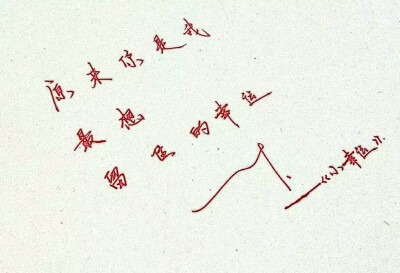 原来你是我
最想
留住的幸运
——《小幸运》